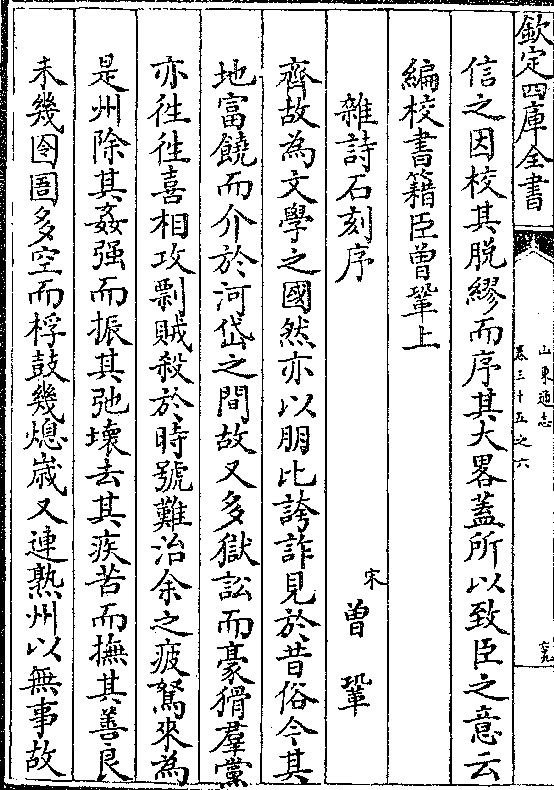 欽定四庫全書
山東通志
卷三十五之六
信之因校其脱繆而序其大畧蓋所以致臣之意云
編校書籍臣曾鞏上
雜詩石刻序
宋曾鞏
齊故為文學之國然亦以朋比誇詐見於昔俗今其
地富饒而介於河岱之間故又多獄訟而豪猾羣黨
亦往往喜相攻剽賊殺於時號難治余之疲駑來為
是州除其姦强而振其弛壞去其疾苦而撫其善良
未幾囹圄多空而桴鼓幾熄嵗又連熟州以無事故